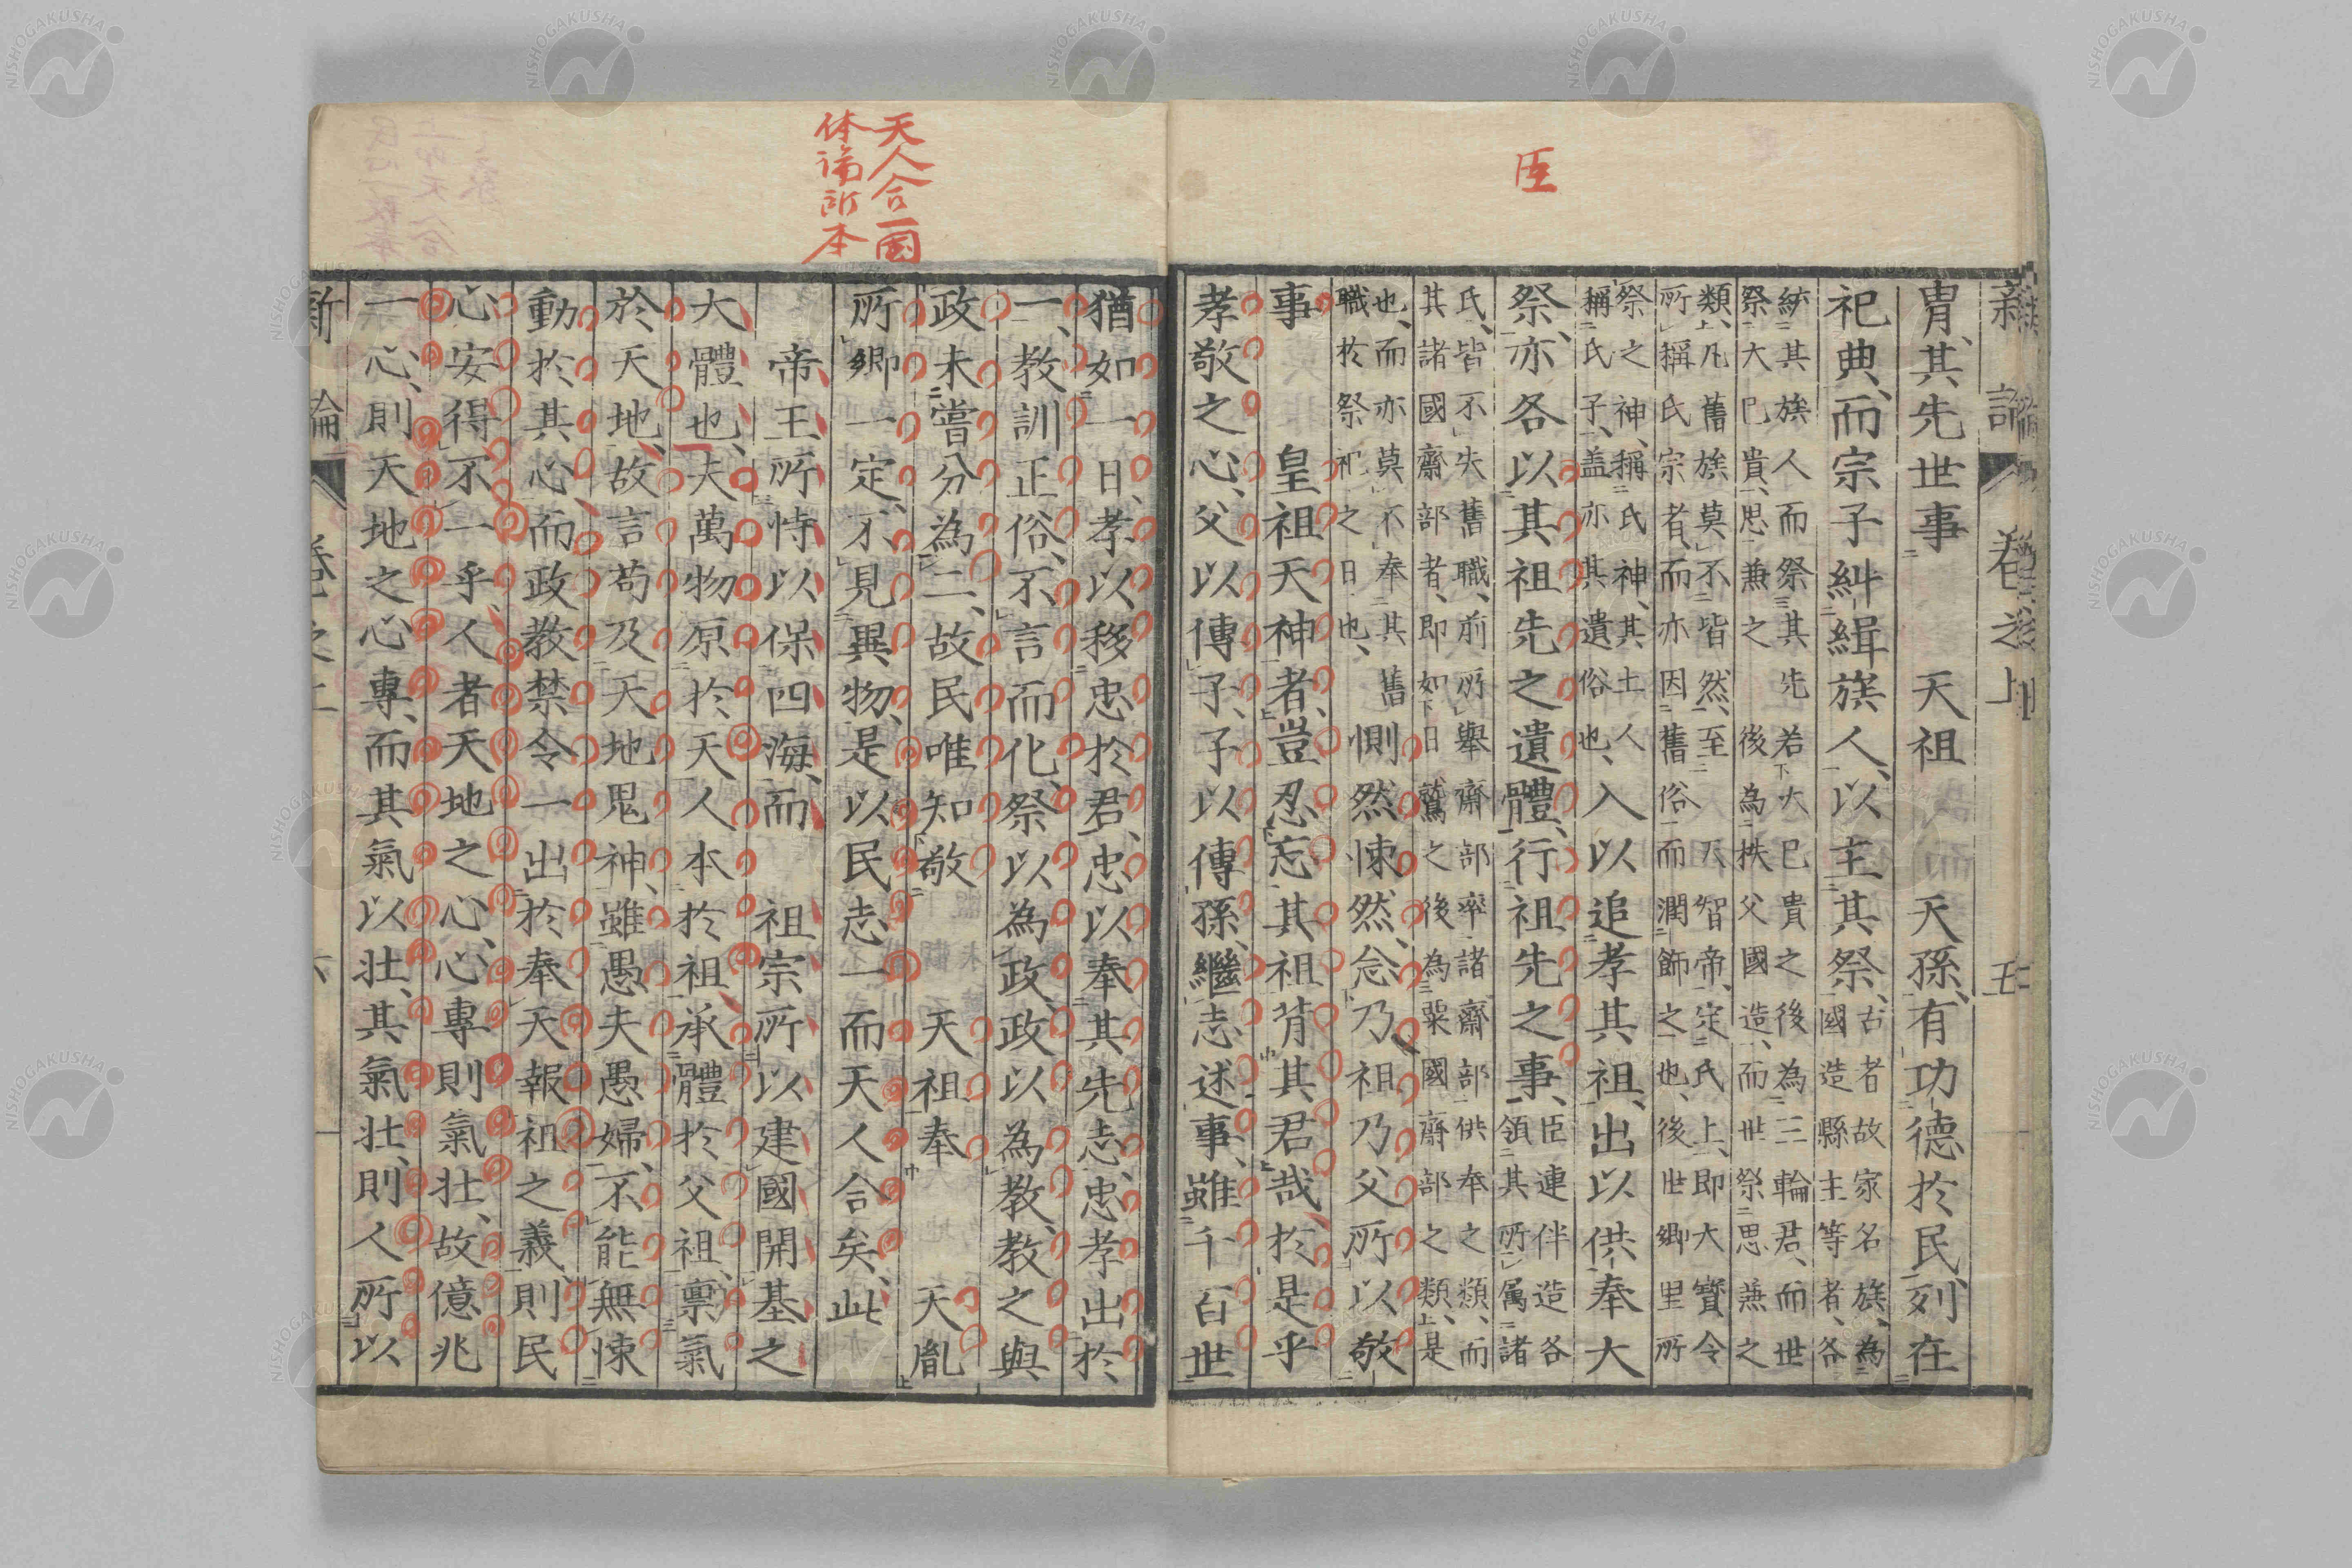 臣
新論 卷之上 五
冑、其先世事 天祖 天孫、有功德於民、列在
祀典、而宗子糾緝族人、以主其祭、古者故家名族、為
國造縣主等者、各
統其族人而祭其先、若大巳貴之後為三輪君、而世
祭大巳貴、思兼之後為秩父國造、而世祭思兼之
類、凡舊族莫不皆然、至 天智帝、定氏上、即大寶令
所稱氏宗者、而亦因舊俗而潤飾之也、後世鄉里所
祭之神、稱氏神、其土人
稱氏子、蓋亦其遺俗也、入以追孝其祖、出以供奉大
祭、亦各以其祖先之遺體、行祖先之事、臣連伴造各
領其所屬諸
氏、皆不失舊職、前所舉齋部率諸齋部供奉之類、而
其諸國齋部者、即如日鷲之後為粟國齋部之類、是
也、而亦莫不奉其舊
職於祭祀之日也、惻然悚然、念乃祖乃父所以敬
事 皇祖天神者、豈忍忘其祖背其君哉、於是乎
孝敬之心、父以傳子、子以傳孫、繼志述事、雖千百世
天人合一國
体論所本
猶如一日、孝以移忠於君、忠以奉其先志、忠孝出於
一、教訓正俗、不言而化、祭以為政、政以為教、教之與
政未嘗分為二、故民唯知敬 天祖奉 天胤
所鄉一定、不見異物、是以民志一而天人合矣、此
帝王所恃以保四海、而 祖宗所以建國開基之
大體也、夫萬物原於天、人本於祖、承體於父祖、稟氣
於天地、故言苟及天地鬼神、雖愚夫愚婦、不能無悚
動於其心、而政教禁令一出於奉天報祖之義、則民
心安得不一乎、人者天地之心、心專則氣壯、故億兆
一心、則天地之心專、而其氣以壯、其氣壯、則人所以
新論 卷之上 六